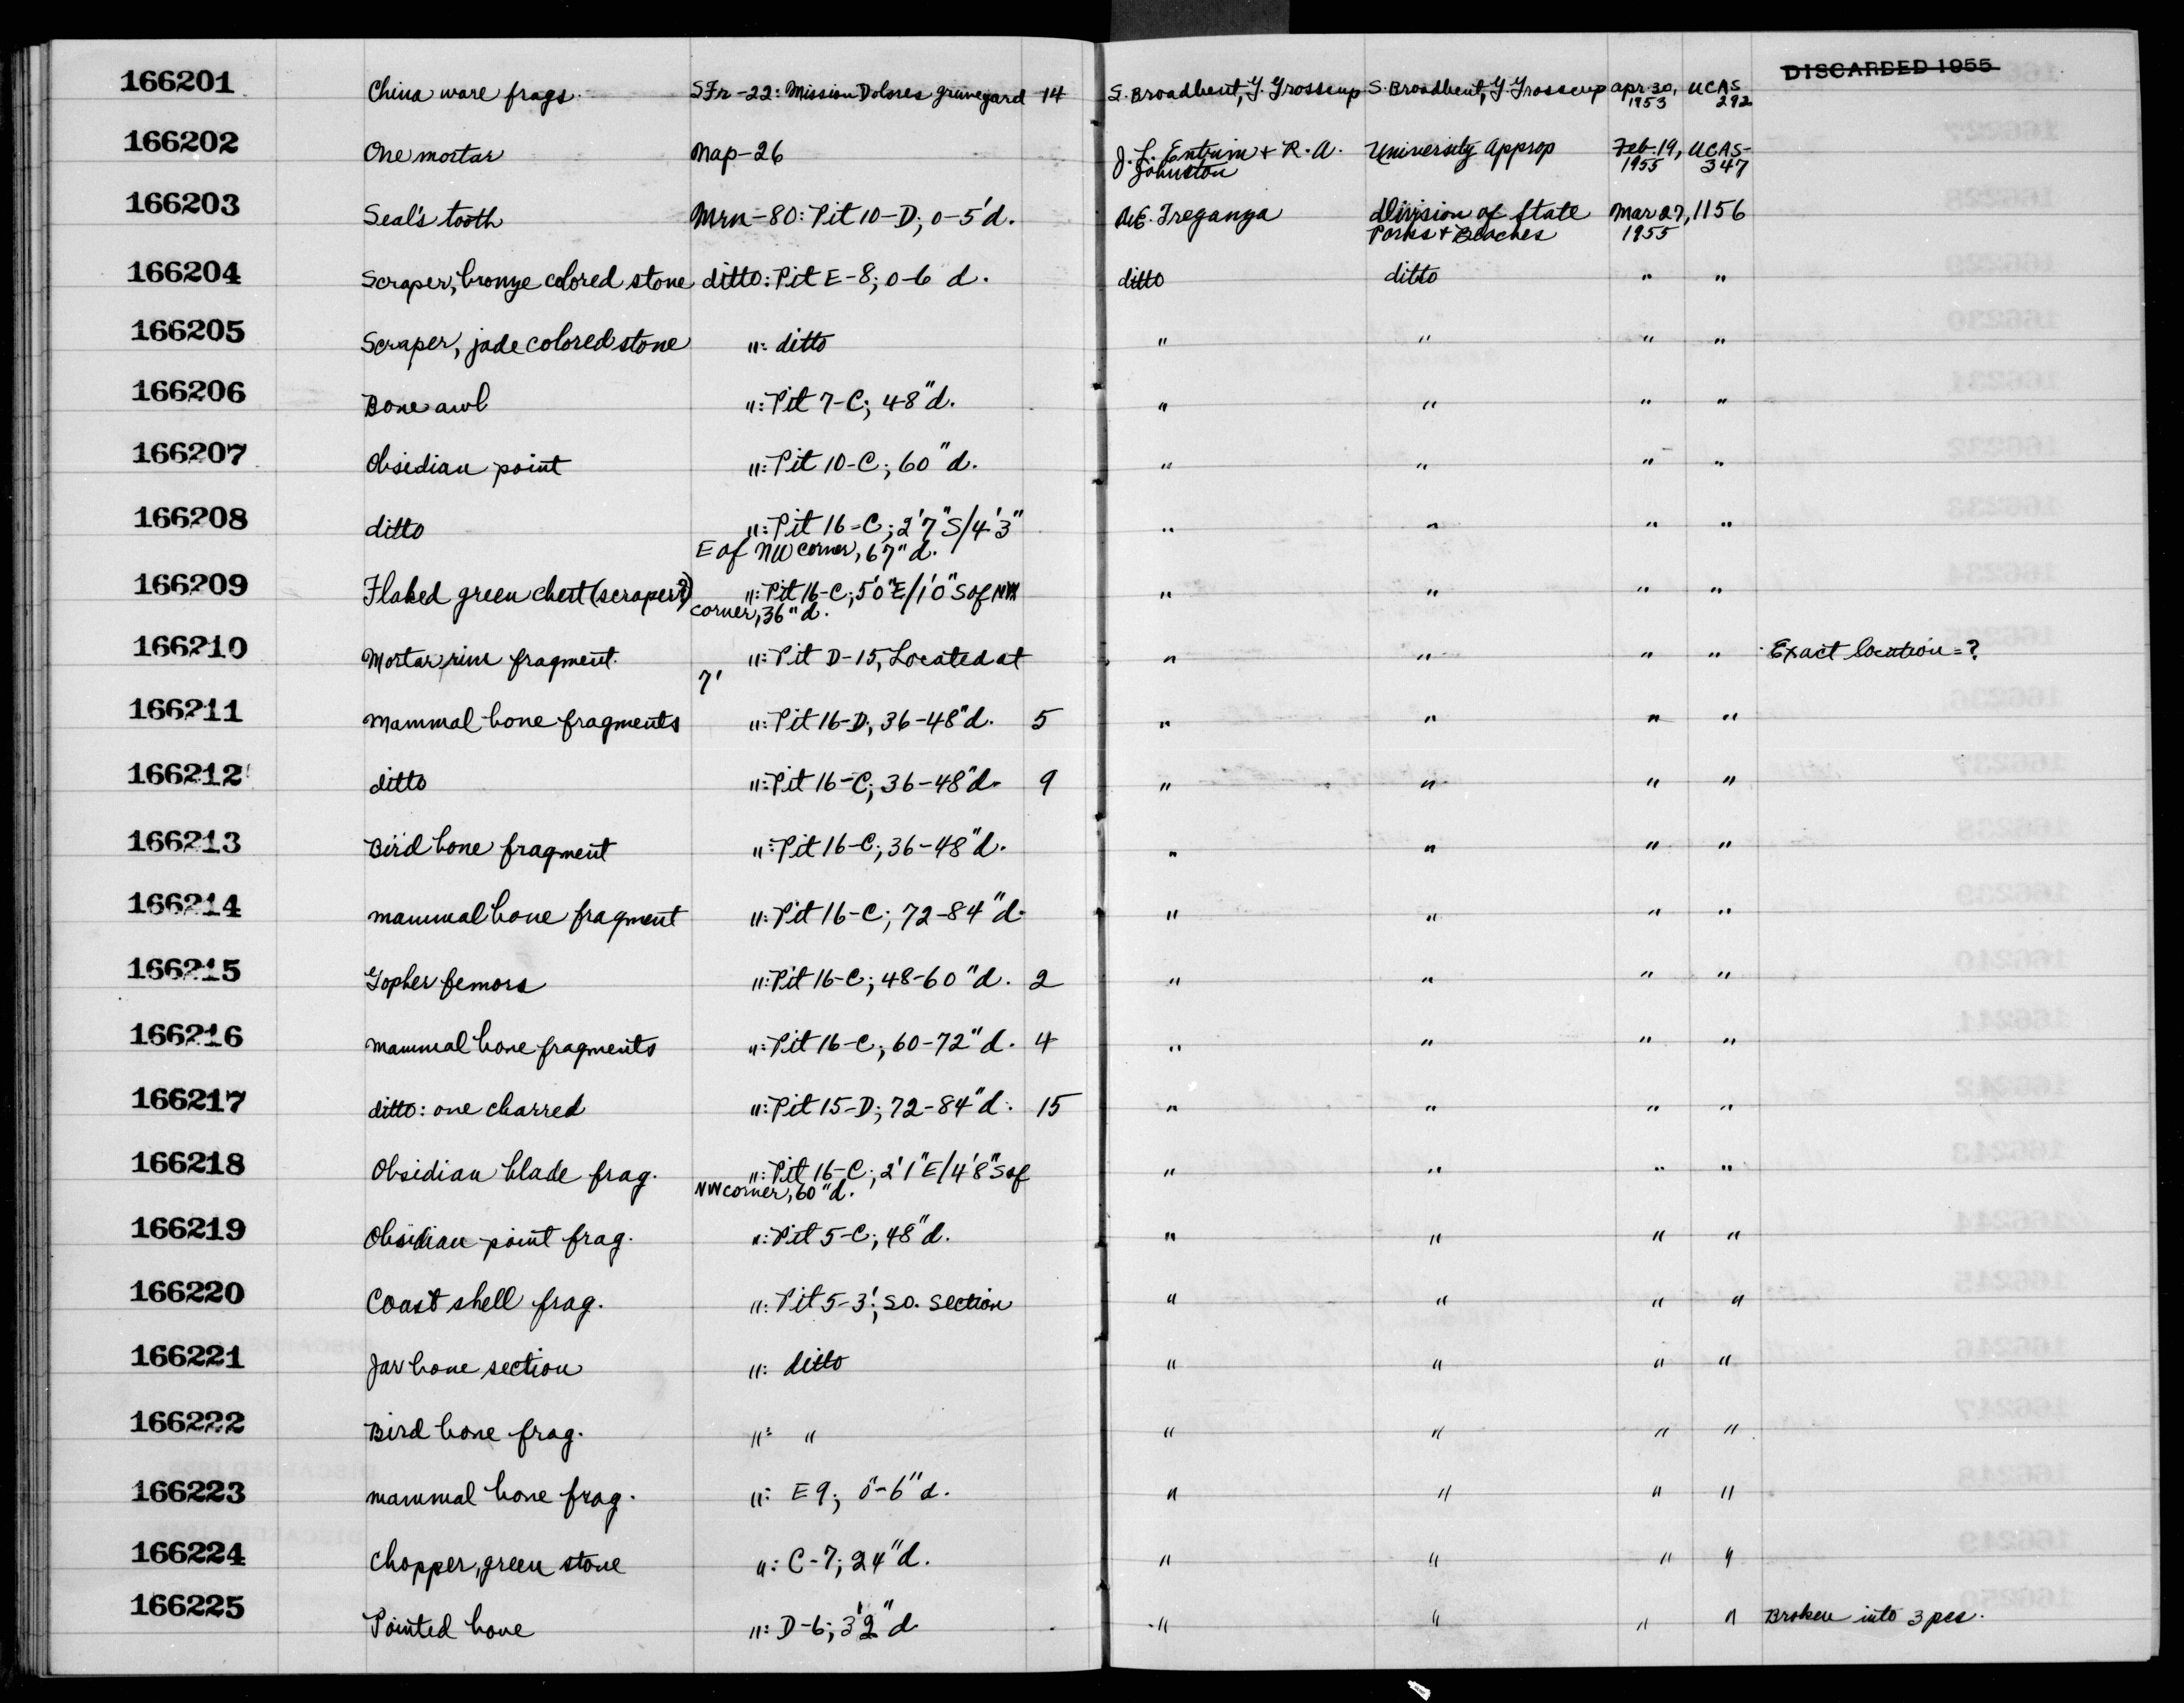 166201 China ware frags. SFr-22: Mission Dolores graveyard 14 S. Broadbent, G. Grosscup S. Broadbent, G. Grosscup Apr. 30, 1953 UCAS 292 DISCARDED 1955
166202 One mortar Nap-26 J. L. & R. A. Johnston University Approp Feb. 19, 1955 UCAS-347
166203 Seal's tooth Mrn-80: Pit 10-D; 0-5'd. A.E. Treganza Division of State Parks & Beaches Mar 27, 1955 1156
166204 Scraper, bronze colored stone ditto: Pit E-8; 0-6 d. ditto ditto " "
166205 Scraper, jade colored stone ": ditto " " " "
166206 Bone awl ": Pit 7-C; 48"d. " " " "
166207 Obsidian point ": Pit 10-C; 60"d. " " " "
166208 ditto ": Pit 16-C; 2'7"S/4'3" " " " "
E of NW corner, 67"d.
166209 Flaked green chert (scraper?) ": Pit 16-C; 5'0"E/1'0"S of NW " " " "
corner, 36"d.
166210 Mortar rim fragment. ": Pit D-15, Located at " " " " Exact location=?
7'
166211 Mammal bone fragments ": Pit 16-D, 36-48"d. 5 " " " "
166212 ditto ": Pit 16-C; 36-48"d. 9 " " " "
166213 Bird bone fragment ": Pit 16-C; 36-48"d. " " " "
166214 mammal bone fragment ": Pit 16-C; 72-84"d. " " " "
166215 Gopher femors ": Pit 16-C; 48-60"d. 2 " " " "
166216 mammal bone fragments ": Pit 16-C; 60-72"d. 4 " " " "
166217 ditto: one charred ": Pit 15-D; 72-84"d. 15 " " " "
166218 Obsidian blade frag. ": Pit 16-C; 2'1"E/4'8"S of " " " "
NW corner, 60"d.
166219 Obsidian point frag. ": Pit 5-C; 48"d. " " " "
166220 Coast shell frag. ": Pit 5-3'; So. Section " " " "
166221 Jar bone section ": ditto " " " "
166222 Bird bone frag. ": " " " " "
166223 mammal bone frag. ": E9; 0-6"d. " " " "
166224 Chopper, green stone ": C-7; 24"d. " " " "
166225 Pointed bone ": D-6; 3'2"d " " " " Broken into 3 pcs.